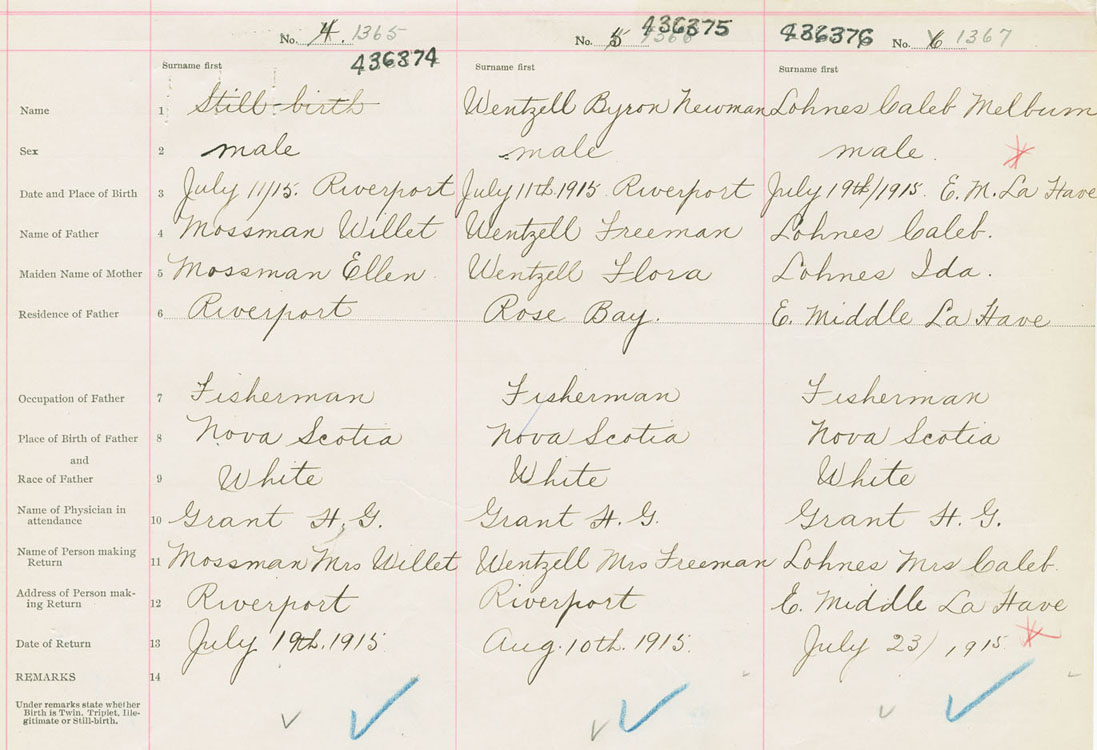 No. 4. 1365 436374
No. 5 436375
436376 No. 6 1367
Surname first Surname first Surname first
Name 1 Still-birth Wentzell Byron Newman Lohnes Caleb Melburn
Sex 2 male male male.
Date and Place of Birth 3 July 11/15. Riverport July 11th. 1915 Riverport July 19th/1915. E. M. La Have
Name of Father 4 Mossman Willet Wentzell Freeman Lohnes Caleb.
Maiden Name of Mother 5 Mossman Ellen. Wentzell Flora Lohnes Ida.
Residence of Father 6 Riverport Rose Bay. E. Middle La Have
Occupation of Father 7 Fisherman Fisherman Fisherman
Place of Birth of Father 8 Nova Scotia Nova Scotia Nova Scotia
and
Race of Father 9 White White White
Name of Physician in
attendance 10 Grant H. G. Grant H. G. Grant H. G.
Name of Person making
Return 11 Mossman Mrs Willet Wentzell Mrs Freeman Lohnes Mrs Caleb.
Address of Person mak-
ing Return 12 Riverport Riverport E. Middle La Have
Date of Return 13 July 19th. 1915 Aug. 10th. 1915. July 23/1915.
REMARKS 14
Under remarks state whether
Birth is Twin, Triplet, Ille-
gitimate or Still-birth.